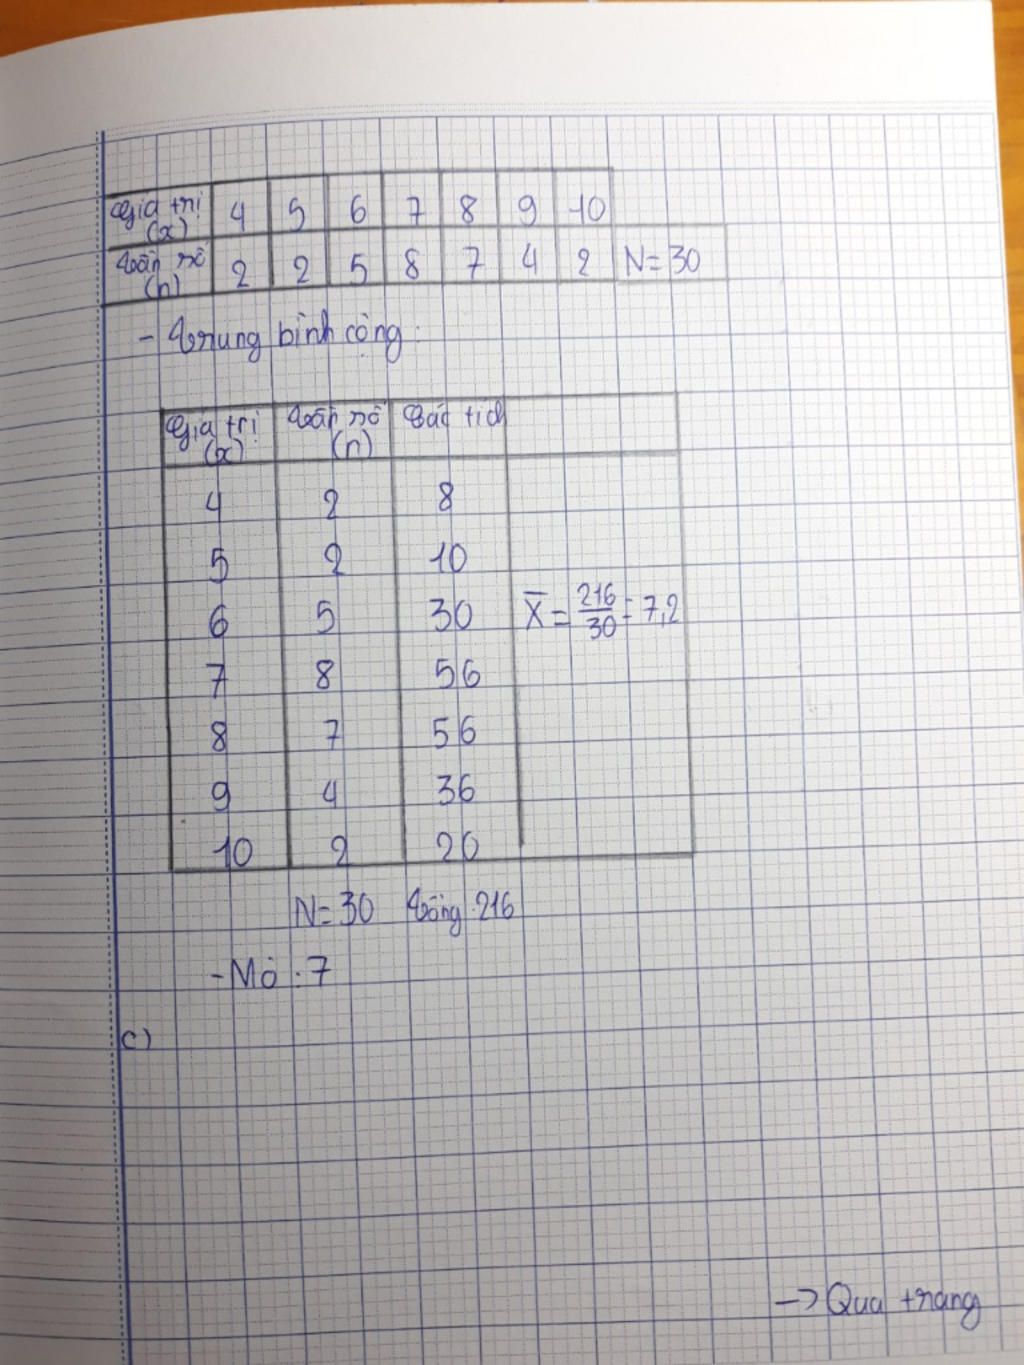 Giá trị (x) 4 5 6 7 8 9 10
Tần số (n) 2 2 5 8 7 4 2 N=30
- Trung bình cộng:
Giá trị (x) Tần số (n) Các tích
4 2 8
5 2 10
6 5 30 X̄ = 216/30 = 7,2
7 8 56
8 7 56
9 4 36
10 2 20
N=30 Tổng:216
- Mo : 7
c)
→ Qua trang